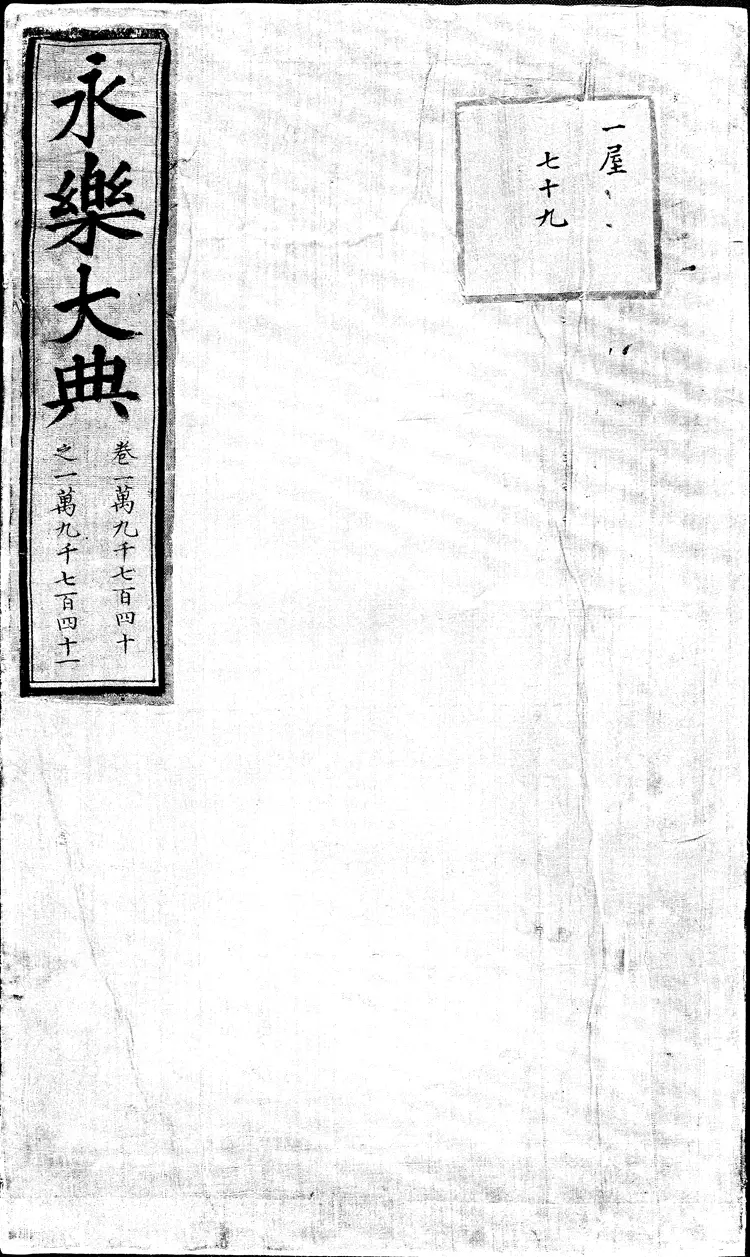 一屋
七十九
永樂大典
卷一萬九千七百四十
之一萬九千七百四十一